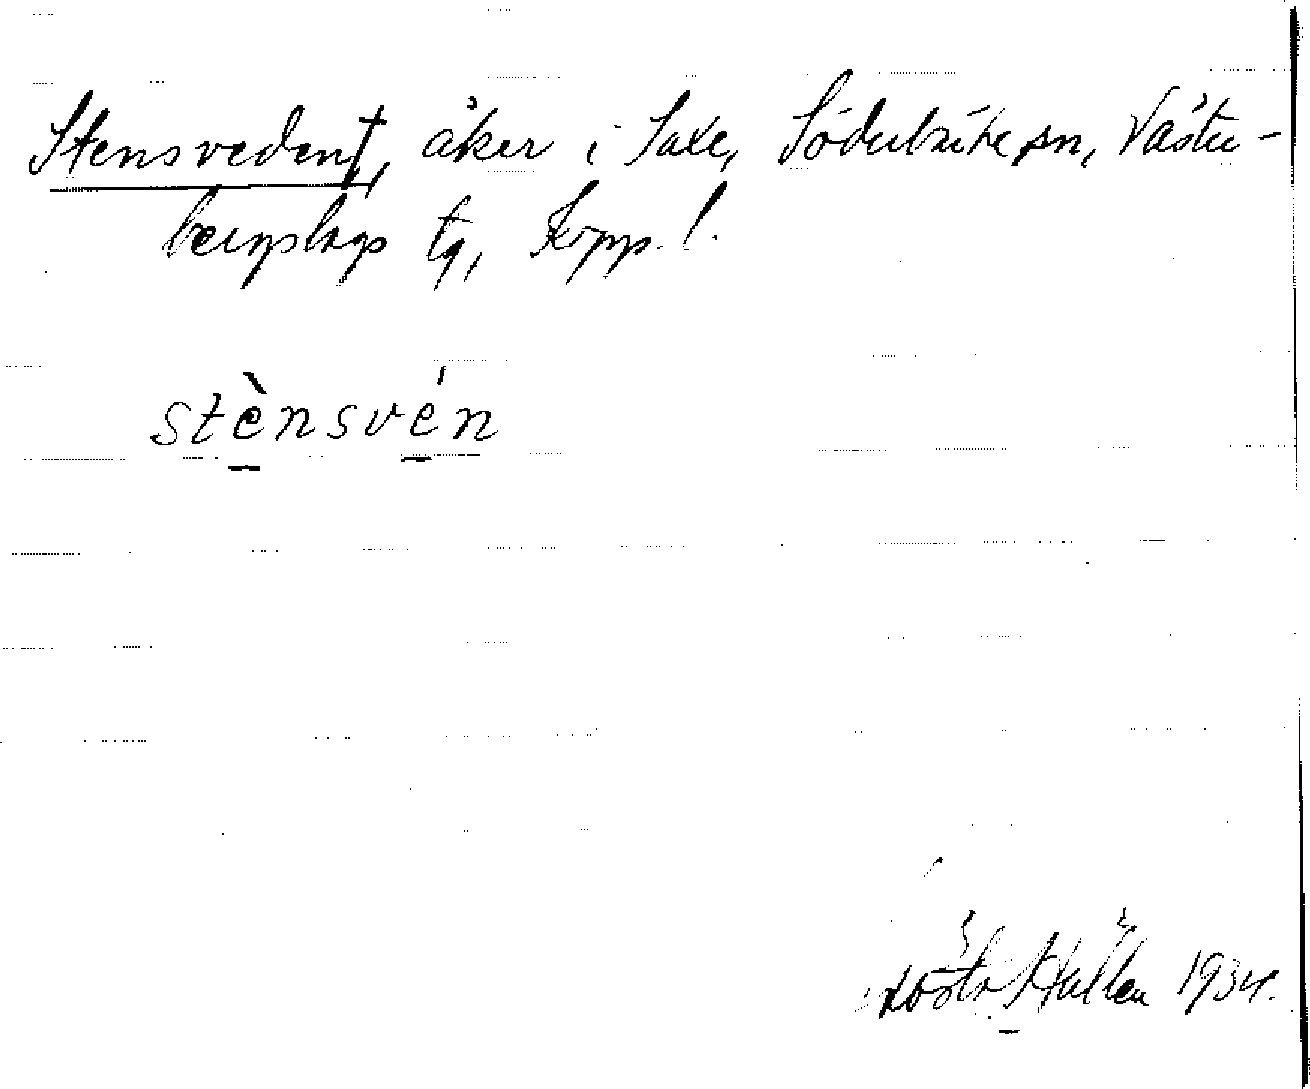 Stensveden†, åker i Saxe, Söderbärke sn, Väster-
bergslags tg, Kopp. l.
stènsvén
1934.